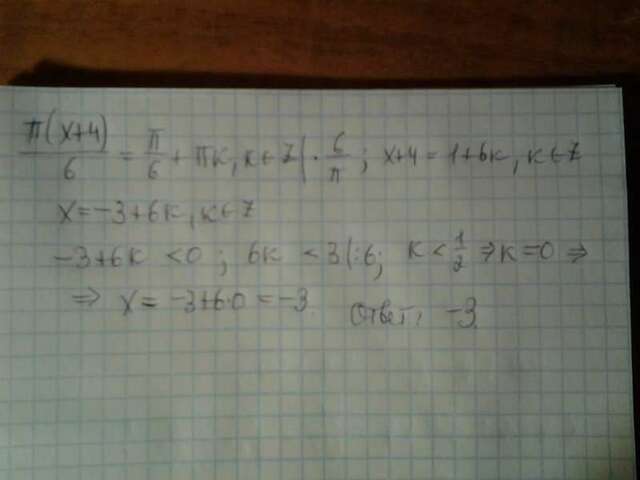 π(x+4)/6 = π/6 + πk, k∈Z |· 6/π ; x+4 = 1+6k, k∈Z
x = -3+6k, k∈Z
-3+6k < 0 ; 6k < 3 |:6; k < 1/2 ⇒ k = 0 ⇒
⇒ x = -3+6·0 = -3. Ответ: -3.